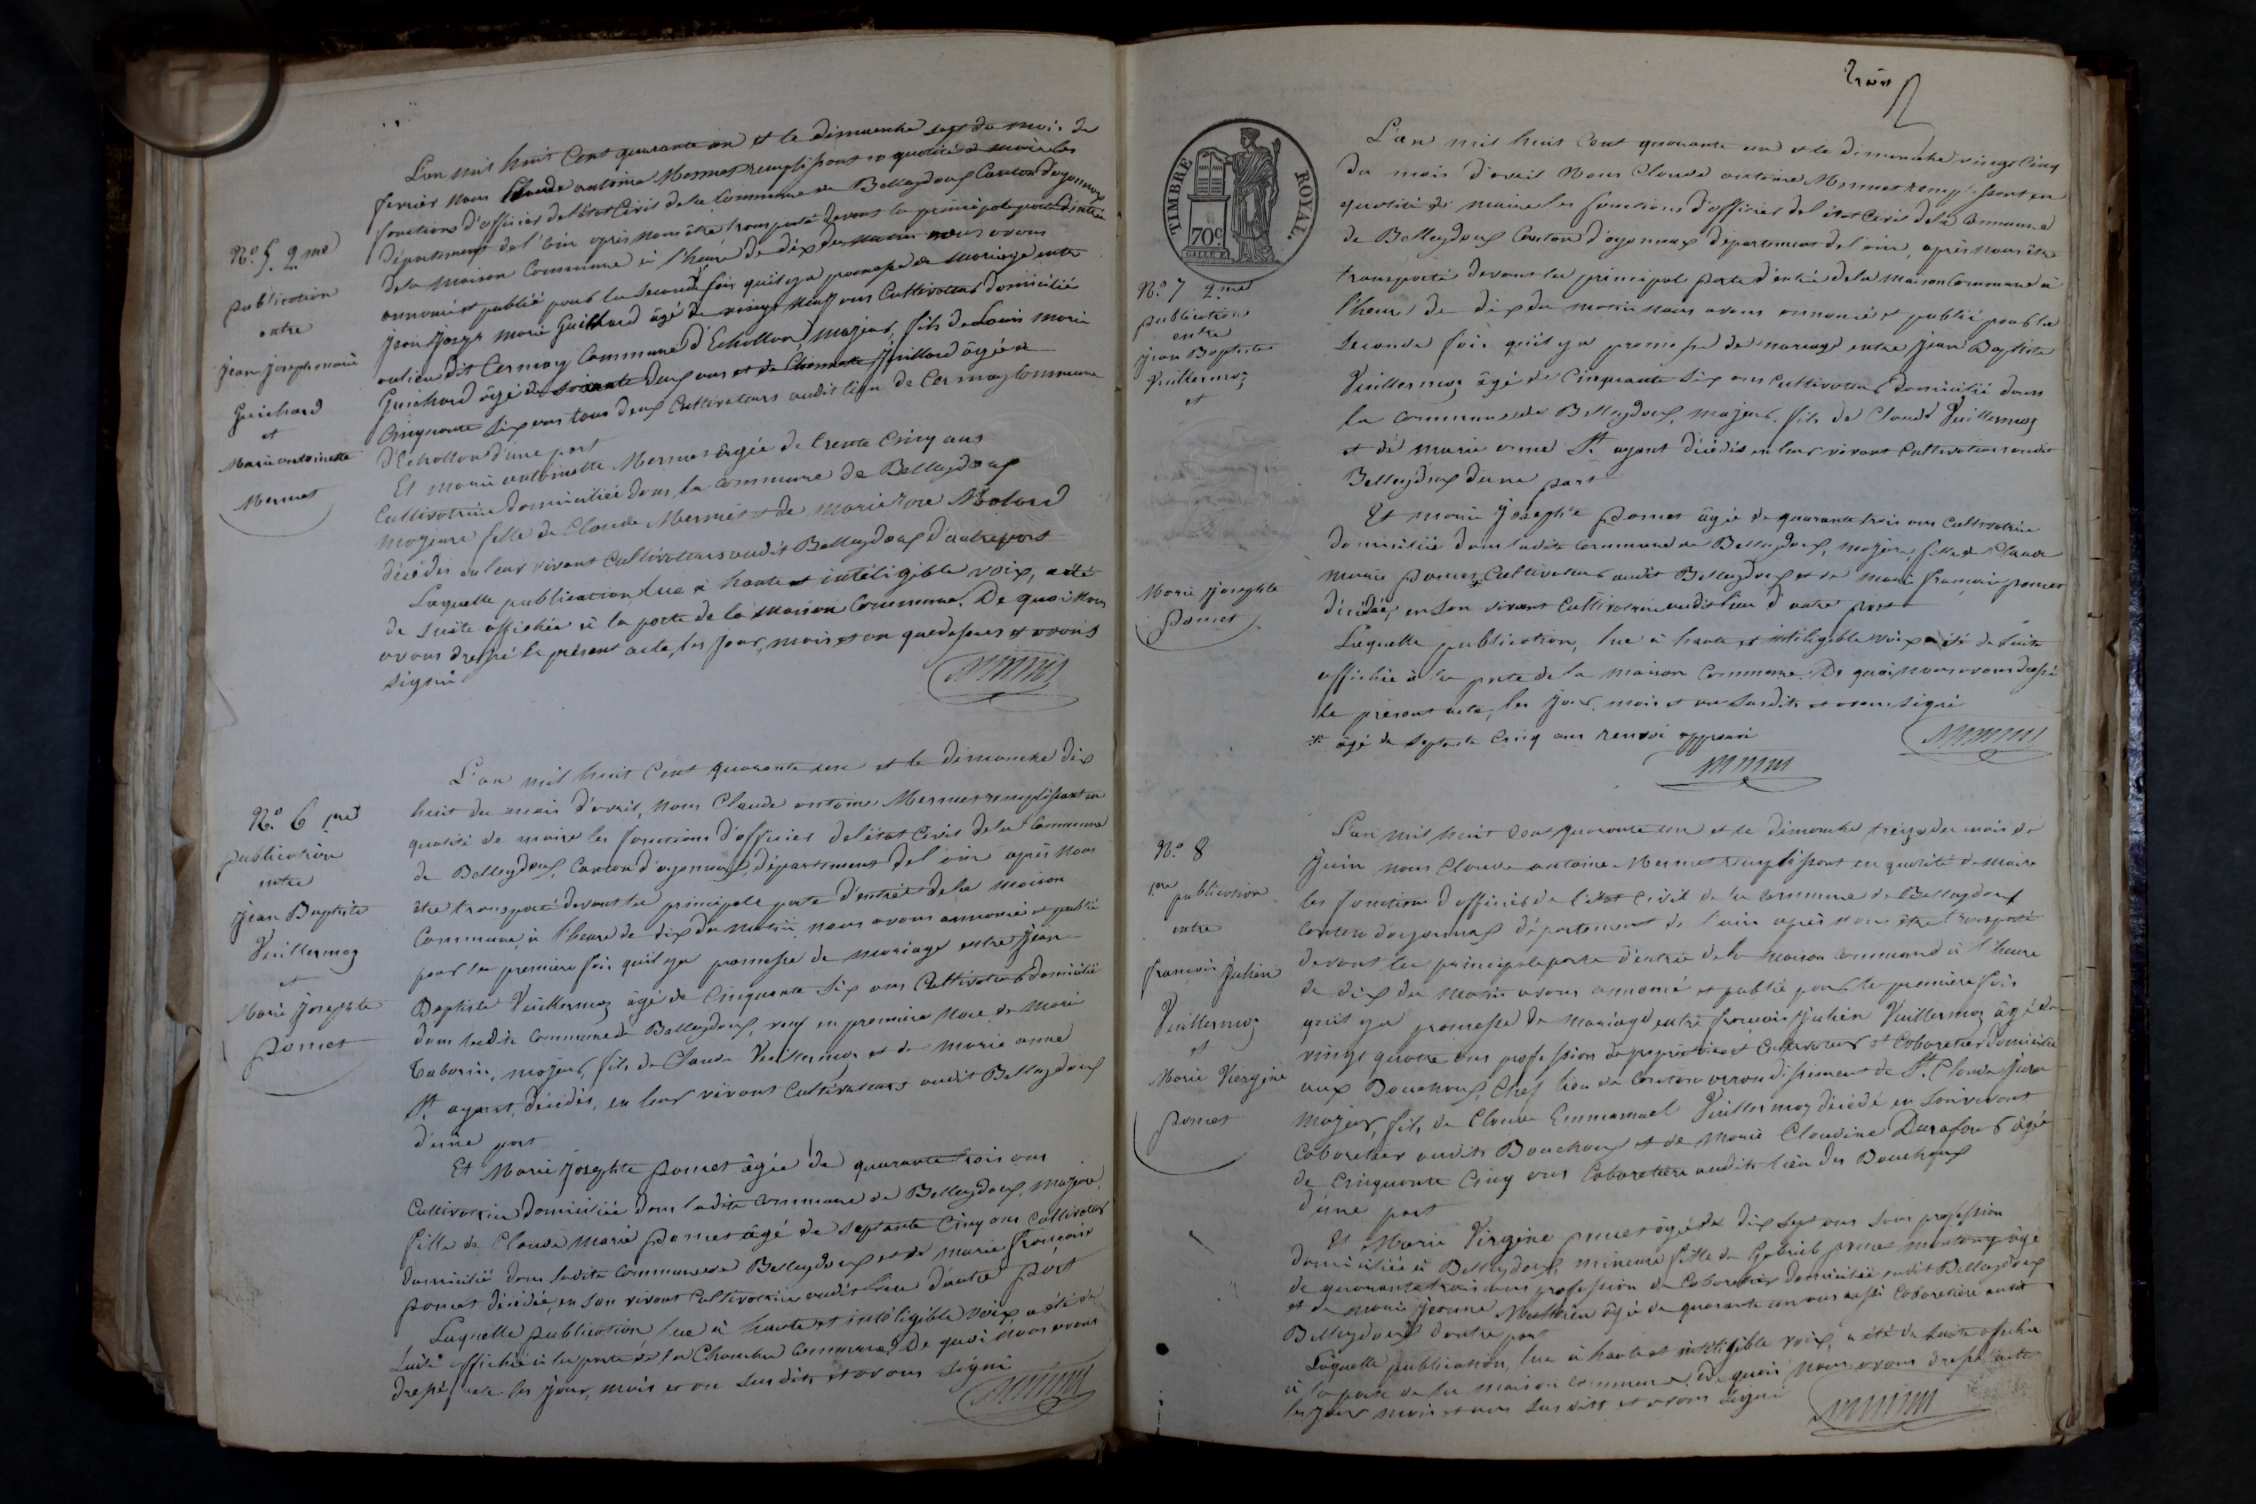 N.° 5. 2.me
publication
entre
jean joseph marie
Guichard
et
Marie antoinette
Mermet
L'an mil huit Cent quarante un et le dimanche sept du mois de
fevrier nous Claude antoine Mermet remplissant en qualité de maire les
fonctions d'officier de l'état Civil de la Commune de Belleydoux Canton d'oyonnax
département de l'ain après nous être transporté devant la principale porte d'entrée
de la maison Commune à l'heure de dix du matin nous avons
annoncé et publié pour la seconde fois qu'il y a promesse de mariage entre
jean joseph marie Guichard âgé de vingt neuf ans Cultivateur domicilié
au lieu dit Cernay Commune d'Echallon, majeur, fils de Louis marie
Guichard âgé de soixante deux ans et de âgée de
Cinquante six ans tous deux Cultivateurs audit lieu de Cernay Commune
d'Echallon d'une part
Et marie antoinette Mermet âgée de trente Cinq ans
Cultivatrice domiciliée dans la commune de Belleydoux
majeure fille de Claude Mermet et de marie rose Molard
décédés en leur vivant Cultivateurs audit Belleydoux d'autre part
Laquelle publication, lue à haute et intéligible voix, a été
de suite affichée à la porte de la maison Commune. De quoi nous
avons dressé le présent acte, les jour, mois et an que dessus et avons
signé
N.° 6 1.re
publication
entre
jean Baptiste
Vuillermoz
et
Marie josephte
Pomet
L'an mil huit Cent quarante un et le dimanche dix
huit du mois d'avril, nous Claude antoine Mermet remplissant en
qualité de maire les fonctions d'officier de l'état Civil de la Commune
de Belleydoux, Canton d'oyonnax, département de l'ain après nous
être transporté devant la principale porte d'entrée de la maison
Commune, à l'heure de dix du matin, nous avons annoncé et publié
pour la premiere fois qu'il y a promesse de mariage entre jean
Baptiste Vuillermoz âgé de Cinquante six ans Cultivateur domicilié
dans ladite Commune de Belleydoux, veuf en premiere Noce de Marie
Taborin, majeur, fils de Claude Vuillermoz et de Marie anne
St. ayant, décédés, en leur vivant Cultivateurs audit Belleydoux
d'une part
Et Marie josephte pomet âgée de quarante trois ans
Cultivatrice domiciliée dans ladite Commune de Belleydoux, majeure,
fille de Claude Marie Pomet âgé de septante Cinq ans Cultivateur
domicilié dans ladite Commune de Belleydoux et de Marie françoise
pomet décédée, en son vivant Cultivatrice audit lieu d'autre part
Laquelle publication, lue à haute et intéligible voix, a été de
suite affichée à la porte de la Chambre Commune. De quoi nous avons
dressé acte les jour, mois et an susdits et avons signé
trois
TIMBRE ROYAL.
70c
N.° 7 2.me
publication
entre
jean Baptiste
Vuillermoz
et
Marie josephte
Pomet
L'an mil huit Cent quarante un et le dimanche vingt Cinq
du mois d'avril Nous Claude antoine Mermet remplissant en
qualité de maire les fonctions d'officier de l'état Civil de la Commune
de Belleydoux Canton d'oyonnax département de l'ain, après nous être
transporté devant la principal porte d'entrée de la maison Commune à
l'heure de dix du matin nous avons annoncé et publié pour la
seconde fois qu'il y a promesse de mariage entre jean Baptiste
Vuillermoz âgé de Cinquante six ans Cultivateur domicilié dans
la commune de Belleydoux, majeur, fils de Claude Vuillermoz
et de marie anne St. ayant décédés en leur vivant Cultivateurs audit
Belleydoux d'une part
Et marie josephte pomet âgée de quarante trois ans Cultivatrice
domiciliée dans ladite Commune de Belleydoux, majeure, fille de Claude
marie pomet * Cultivateur audit Belleydoux et de marie françoise pomet
décédée, en son vivant Cultivatrice audit lieu d'autre part
Laquelle publication, lue à haute et intéligible voix, a été de suite
affichée à la porte de la maison Commune. De quoi nous avons dressé
le présent acte, les jour, mois et an susdits et avons signé
* âgé de septante Cinq ans renvoi approuvé
N.° 8
1.re publication
entre
françois julien
Vuillermoz
et
Marie Virgine
Pomet
L'an mil huit Cent quarante un et le dimanche treize du mois de
juin nous Claude antoine Mermet remplissant en qualité de maire
les fonctions d'officier de l'état Civil de la Commune de Belleydoux
Canton d'oyonnax département de l'ain après nous être transporté
devant la principale porte d'entrée de la maison commune à l'heure
de dix du matin avons annoncé et publié pour la premiere fois
qu'il y a promesse de Mariage entre françois julien Vuillermoz âgé de
vingt quatre ans profession de propriétaire Cultivateur et Cabaretier domicilié
aux Bouchoux, Chef lieu de Canton arrondissement de St. Claude jura
majeur, fils de Claude Emmanuel Vuillermoz décédé en son vivant
Cabaretier audits Bouchoux et de Marie Claudine Durafour âgée
de Cinquante Cinq ans Cabaretière audits lieu des Bouchoux
d'une part
Et Marie Virgine pomet âgée de dix sept ans sans profession
domiciliée à Belleydoux, mineure fille de Gabriel pomet âgé
de quarante trois ans profession de Cabaretier domicilié audit Belleydoux
et de Marie jeanne Mathieu âgée de quarante un ans aussi Cabaretière audit
Belleydoux d'autre part
Laquelle publication, lue à haute et intéligible voix, a été de suite affichée
à la porte de la maison Commune. De quoi nous avons dressé acte
les jour mois et an susdits et avons signé